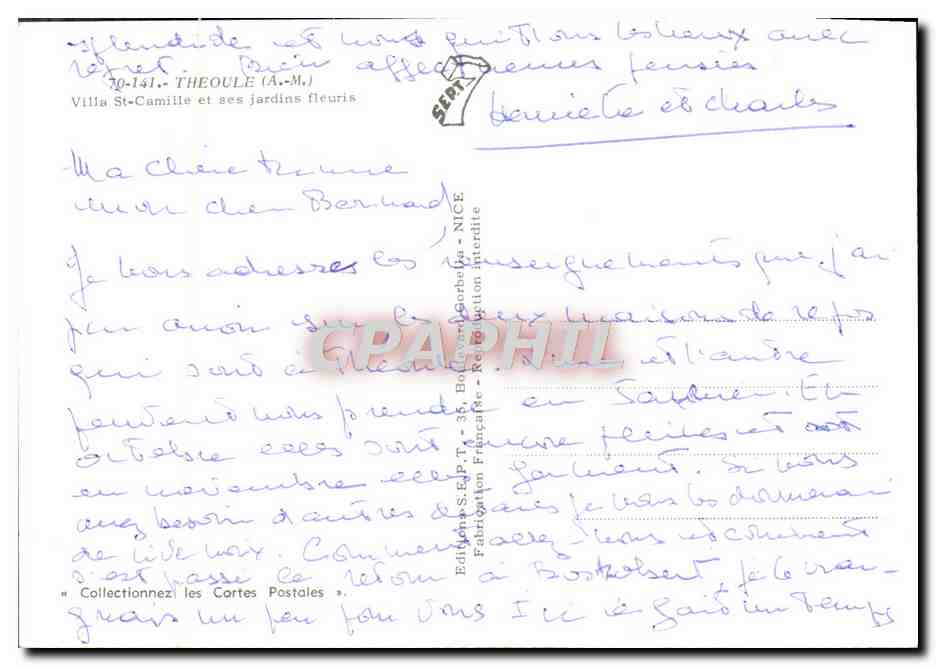 splendide et nous quittons les lieux avec
regret. Bien affectueuses pensées
70-141.- THEOULE (A.-M.)
Villa St-Camille et ses jardins fleuris
SEPT 7
Henriette et Charles
Ma chère
mon cher Bernard,
Je vous adresse les renseignements que j'ai
pu avoir sur les deux maisons de repos
qui sont à Théoule. L'une et l'autre
peuvent vous prendre en Janvier. En
octobre elles sont encore pleines et
en novembre elles ferment. Si vous
avez besoin d'autres détails je vous les donnerai
de vive voix. Comment allez-vous et comment
s'est passé le retour à je le crai-
gnais un peu pour vous Ici il fait un temps
« Collectionnez les Cortes Postales ».
Editions S.E.P.T. - 35, Boulevard Gorbella - NICE
Fabrication Française - Reproduction interdite
CPAPHIL